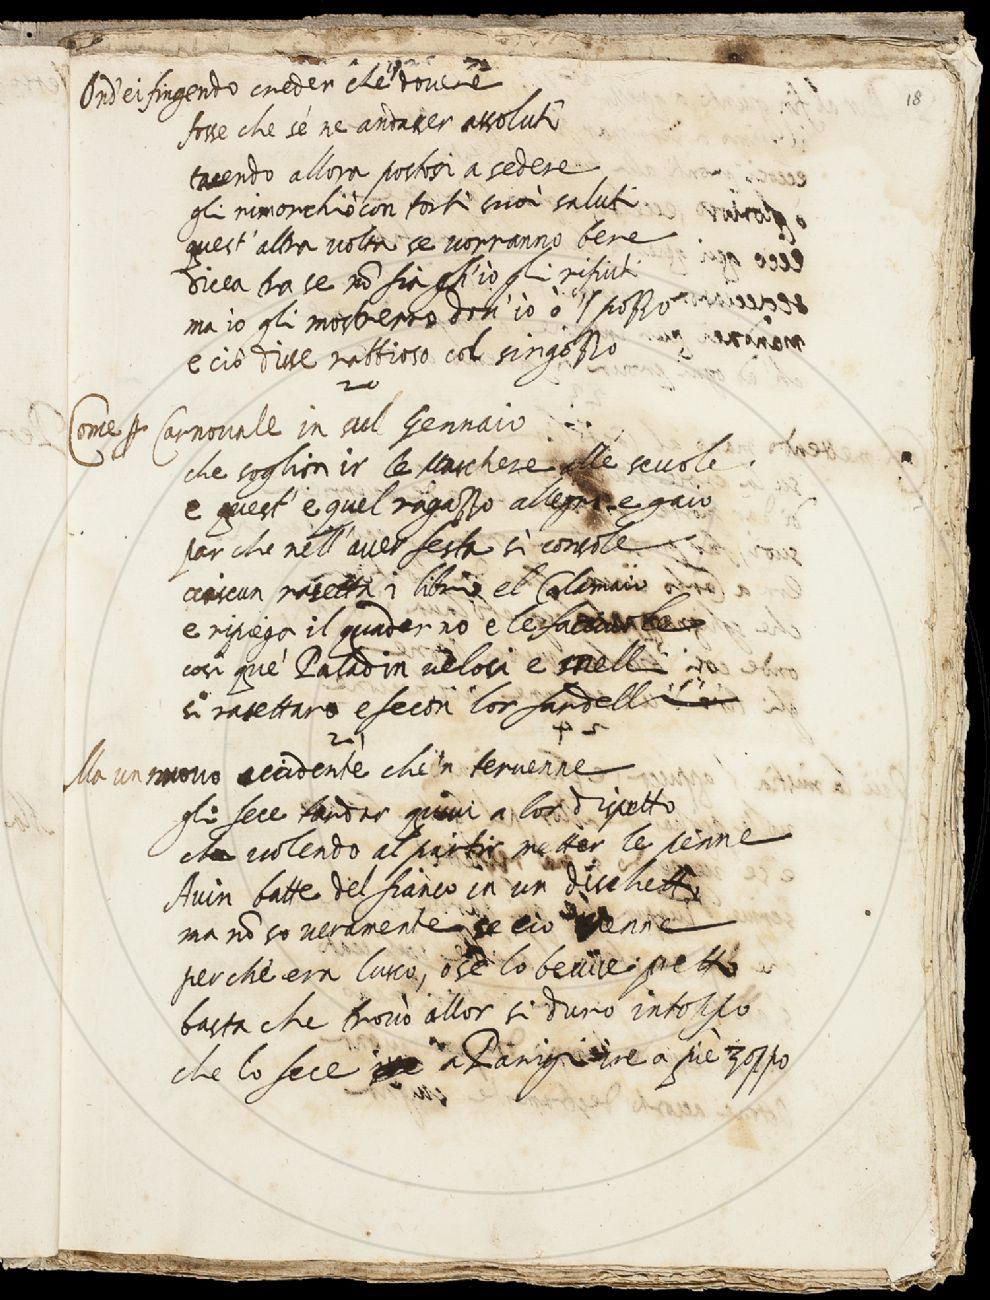 18
Ond'ei fingendo creder che'l douere
fosse che sé ne andasser assoluti
tacendo allora postosi a sedere
gli rimorchiò con torti suoi saluti
quest'altra uolta se uorranno bere
dicea tra se nō fia ch'io gli rifiuti
ma io gli mosterrò dou'io ò 'l pozzo
e ciò disse rabbioso col singozzo
20
Come p Carnouale in sul Gennaio
che soglion ir le Maschere alle scuole
e quest' e quel ragazzo allegro e gaio
par che nell'auer festa si console
ciascun rasetta i libri el Calamaio
e ripiega il quaderno e le
cosi que' Paladin uelosi e snelli
si rasettaro e fecion lor fardelli
21
Ma un nuouo accidente che'n teruenne
gli fece tardar quiui a lor dispetto
che uolendo al partir metter le penne
Auin batte del fianco in un deschetto
ma nō so ueramente se ciò uenne
perche era lusco, o se lo beuue pretto
basta che trouò allor si duro intoppo
che lo fece a Parigi ire a piè zoppo